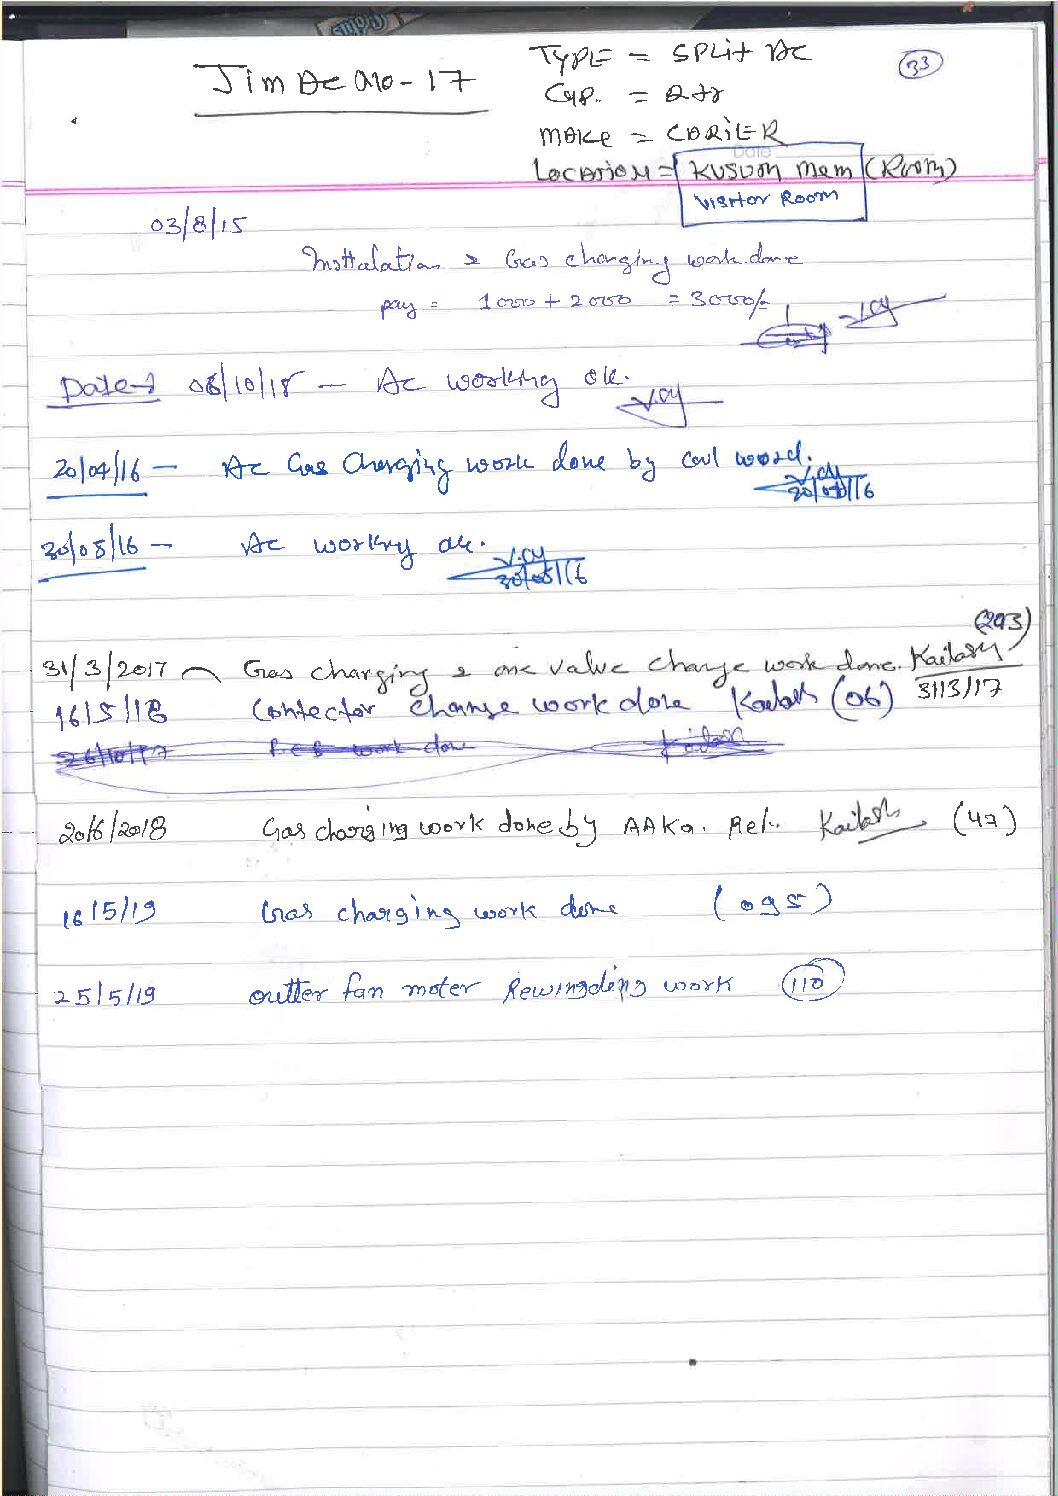 Jim Ac No - 17
TYPE = SPLit AC
33
Cap. = 2 tr
MAKE = CARiER
Date
LOCATION = KUSUM Mam (Room)
Visitor Room
03/8/15
Insttalation & Gas charging work done
pay = 1000 + 2000 = 3000/-
Date → 08/10/15 - Ac working ok.
20/04/16 - Ac Gas Charging work done by
20/04/16
30/08/16 - Ac working ok.
30/08/16
(293)
31/3/2017 - Gas charging & one valve change work done. Kailash
31/3/17
16/5/18 Contector change work done Kailash (06)
26/10/17 work done Kailash
20/6/2018 Gas charging work done by AAKa. Ref. Kailash (47)
16/5/19 Gas charging work done (095)
25/5/19 outter fan moter Rewingding work 110